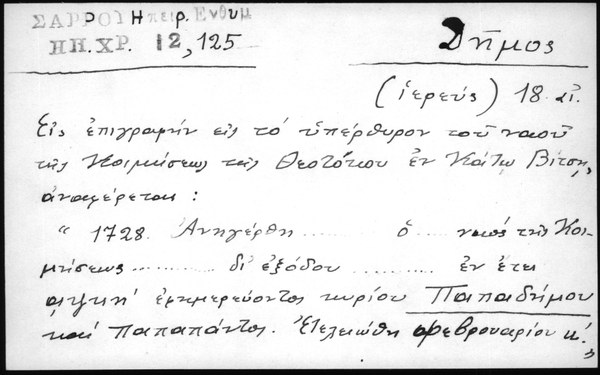 ΣΑΡΡΟΥ Ηπειρ. Ενθυμ
ΗΠ. ΧΡ. 12, 125
Δῆμος
(ἱερεύς) 18 αἰ.
Εἰς ἐπιγραφήν εἰς τό ὑπέρθυρον τοῦ ναοῦ
τῆς Κοιμήσεως τῆς Θεοτόκου ἐν Κάτω Βίτσῃ,
ἀναφέρεται:
" 1728. Ἀνηγέρθη ........ ὁ .... ναός τῆς Κοι-
μήσεως ............ δι' ἐξόδου ............ ἐν ἔτει
αψκη' ἐφημερεύοντος κυρίου Παπαδήμου
καί Παπαπάντος. Ἐτελειώθη φεβρουαρίου κ'.